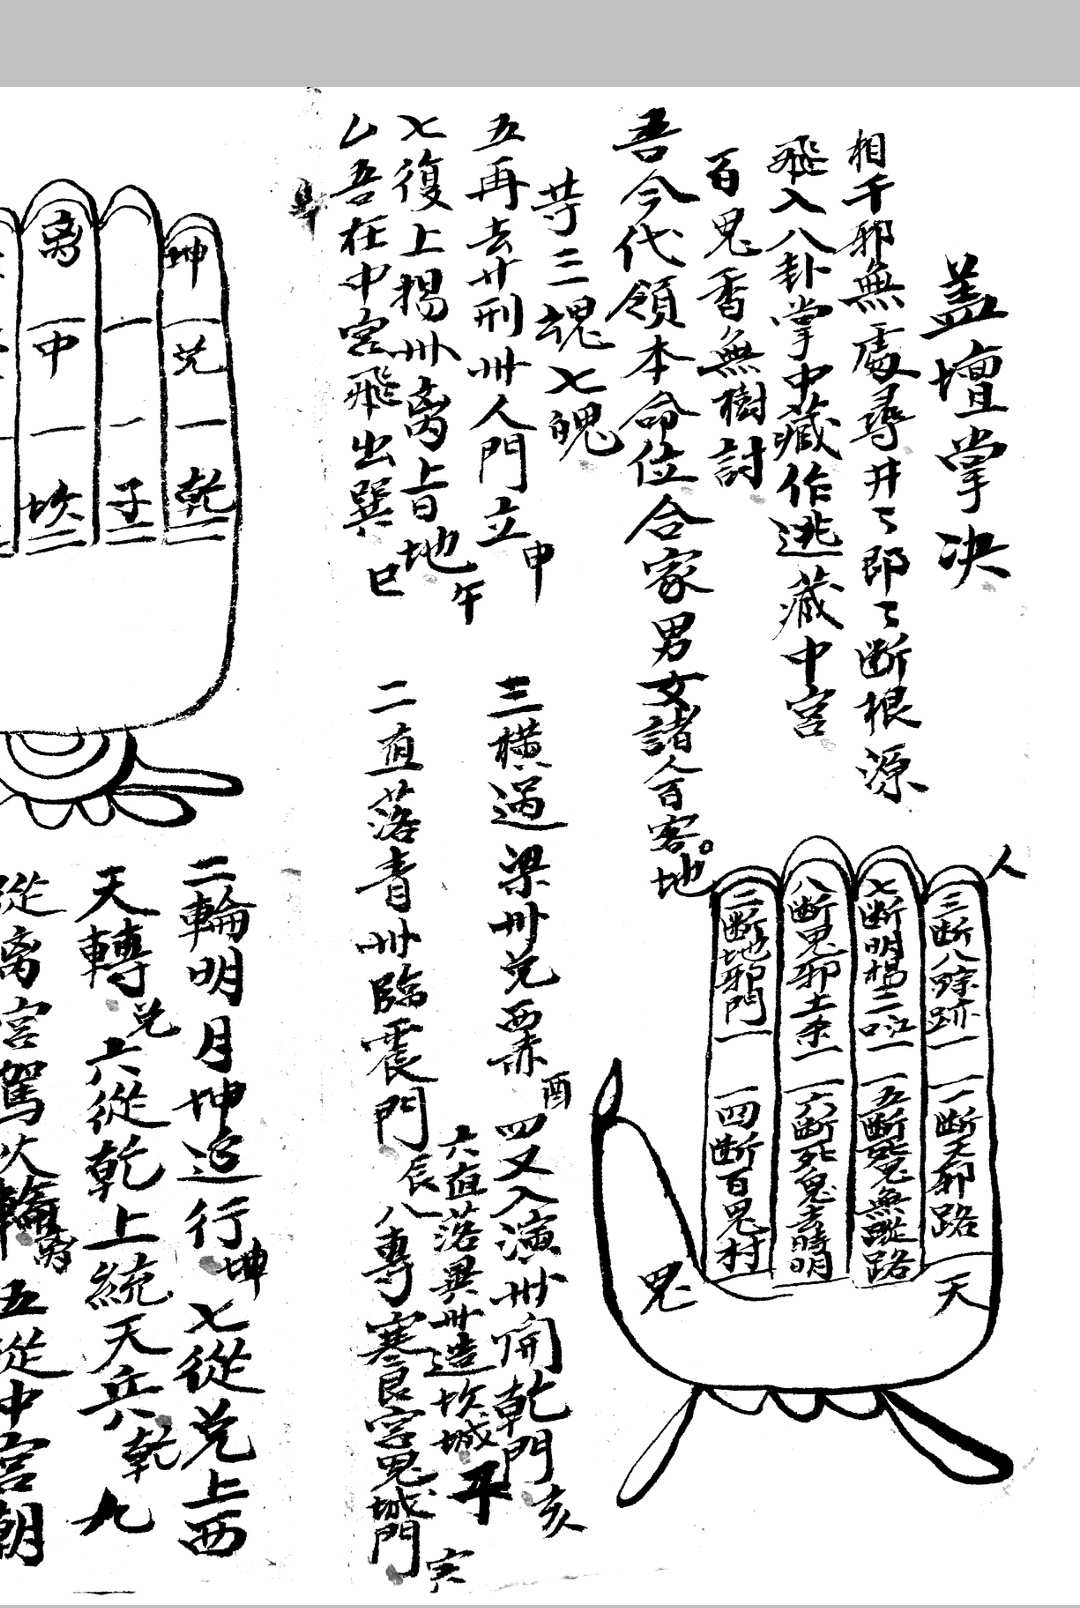 盖壇掌决
相千邪無處尋井々郎々断根源
飛入八卦掌中藏作逃藏中宮
百鬼香無樹討
吾今代領本命位合家男女諸人百客地
共三魂七魄
五再去廾刑卅人門立申
七復上揚卅离上首地午
厶吾在中宮飛出巽巳
三横過梁卅兑西粟酉
四又入演卅開乾門亥
六直落冀卅造坎城子
二直落青卅臨震門辰
八專寒艮宮鬼城門寅
人
三断八踪跡
一断天邪路
七断明楊二
五断死鬼無蹤路
八断鬼邪土
六断死鬼去時明
二断地邪門
四断百鬼村
天
鬼
坤
兑
乾
子
离
中
坎
二輪明月坤边行坤
七從兑上西
天轉兑
六從乾上統天兵乾
九
從离宮駕火輪离
五從中宮朝